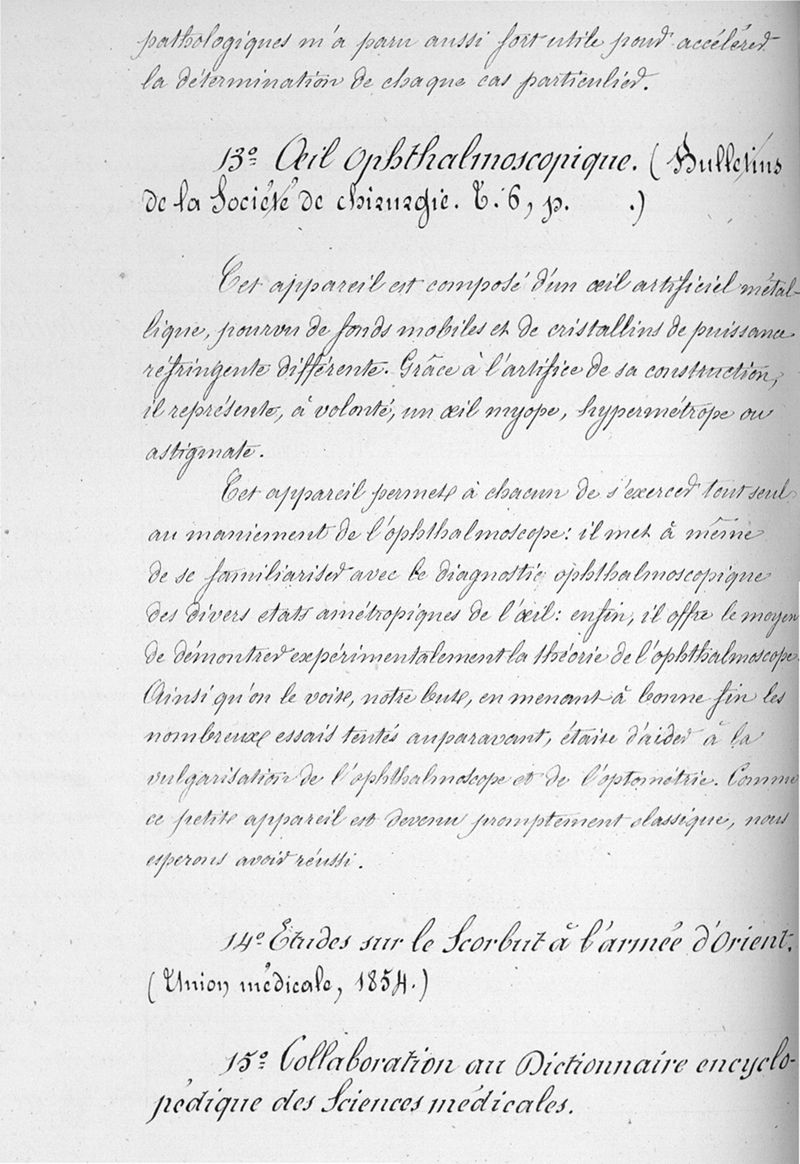 pathologiques m'a paru aussi fort utile pour accélérer
la détermination de chaque cas particulier.
13º Œil ophthalmoscopique. (Bulletins
de la Société de chirurgie. T. 6, p. .)
Cet appareil est composé d'un œil artificiel métal-
lique, pourvu de fonds mobiles et de cristallins de puissance
réfringente différente. Grâce à l'artifice de sa construction,
il représente, à volonté, un œil myope, hypermétrope ou
astigmate.
Cet appareil permet à chacun de s'exercer tout seul
au maniement de l'ophthalmoscope: il met à même
de se familiariser avec le diagnostic ophthalmoscopique
des divers etats amétropiques de l'œil: enfin, il offre le moyen
de démontrer expérimentalement la théorie de l'ophthalmoscope.
Ainsi qu'on le voit, notre but, en menant à bonne fin les
nombreux essais tentés auparavant, était d'aider à la
vulgarisation de l'ophthalmoscope et de l'optométrie. Comme
ce petit appareil est devenu promptement classique, nous
esperons avoir réussi.
14º Etudes sur le Scorbut à l'armée d'Orient.
(Union médicale, 1854.)
15º Collaboration au Dictionnaire encyclo-
pédique des Sciences médicales.